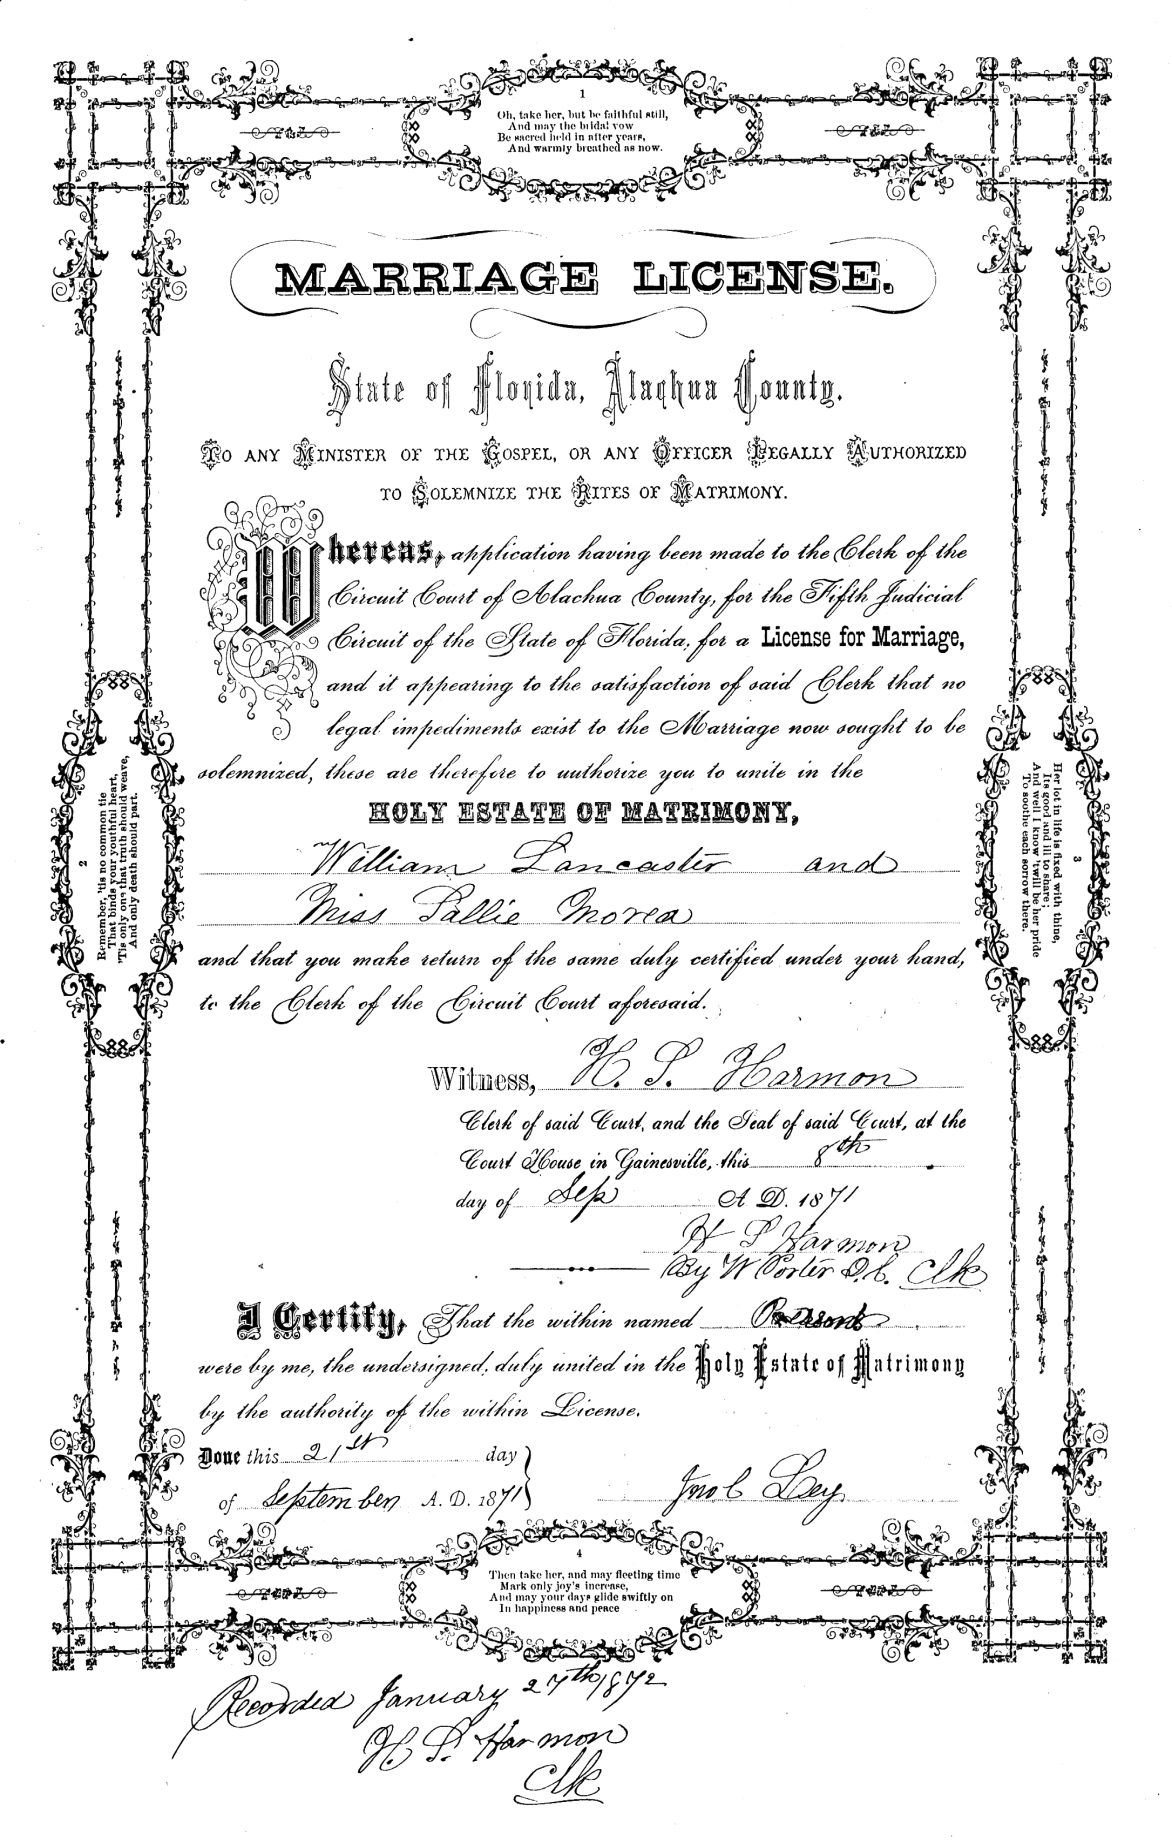 1
Oh, take her, but be faithful still,
And may the bridal vow
Be sacred held in after years,
And warmly breathed as now.
MARRIAGE LICENSE.
State of Florida, Alachua County.
TO ANY MINISTER OF THE GOSPEL, OR ANY OFFICER LEGALLY AUTHORIZED
TO SOLEMNIZE THE RITES OF MATRIMONY.
Whereas, application having been made to the Clerk of the
Circuit Court of Alachua County, for the Fifth Judicial
Circuit of the State of Florida, for a License for Marriage,
and it appearing to the satisfaction of said Clerk that no
legal impediments exist to the Marriage now sought to be
solemnized, these are therefore to authorize you to unite in the
HOLY ESTATE OF MATRIMONY,
William Lancaster and
Miss Sallie Morea
and that you make return of the same duly certified under your hand,
to the Clerk of the Circuit Court aforesaid.
2
Remember, 'tis no common tie
That binds your youthful heart,
'Tis only one that truth should weave,
And only death should part.
3
Her lot in life is fixed with thine,
Its good and ill to share;
And well I know 'twill be her pride
To soothe each sorrow there.
Witness, H. S. Harmon
Clerk of said Court, and the Seal of said Court, at the
Court House in Gainesville, this 8th
day of Sep A. D. 1871
H S Harmon
By W Porter D. C. Clk
I Certify, That the within named Persons
were by me, the undersigned, duly united in the Holy Estate of Matrimony
by the authority of the within License.
Done this 21st day
of September A. D. 1871
Jno C Ley
4
Then take her, and may fleeting time
Mark only joy's increase,
And may your days glide swiftly on
In happiness and peace
Recorded January 27th 1872
H. S. Harmon
Clk